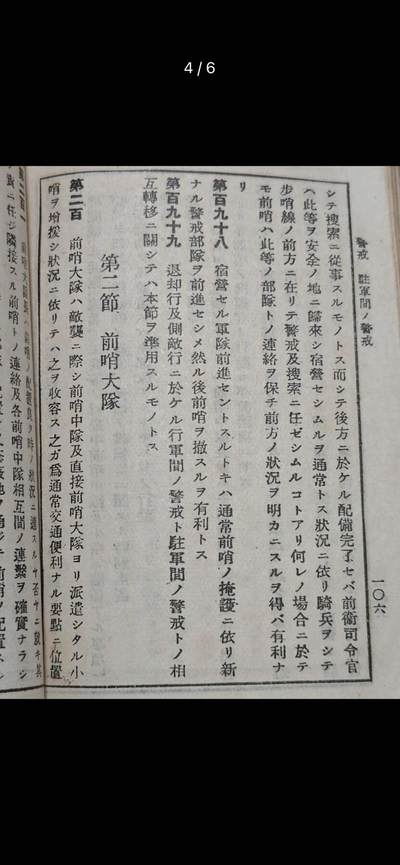 4 / 6
警戒 駐軍間ノ警戒
一〇六
シテ搜索ニ從事スルモノトス而シテ後方ニ於ケル配備完了セバ前衞司令官
ハ此等ヲ安全ノ地ニ歸來シ宿營セシムルヲ通常トス狀況ニ依リ騎兵ヲシテ
步哨線ノ前方ニ在リテ警戒及搜索ニ任ゼシムルコトアリ何レノ場合ニ於テ
モ前哨ハ此等ノ部隊トノ連絡ヲ保チ前方ノ狀況ヲ明カニスルヲ得バ有利ナ
リ
第百九十八 宿營セル軍隊前進セントスルトキハ通常前哨ノ掩護ニ依リ新
ナル警戒部隊ヲ前進セシメ然ル後前哨ヲ撤スルヲ有利トス
第百九十九 退却行及側敵行ニ於ケル行軍間ノ警戒ト駐軍間ノ警戒トノ相
互轉移ニ關シテハ本節ヲ準用スルモノトス
第二節 前哨大隊
第二百 前哨大隊ハ敵襲ニ際シ前哨中隊及直接前哨大隊ヨリ派遣シタル小
哨ヲ增援シ狀況ニ依リテハ之ヲ收容ス之ガ爲通常交通便利ナル要點ニ位置
ニ任ジ隣接スル前哨トノ連絡及各前哨中隊相互間ノ連繫ヲ確實ナラシ